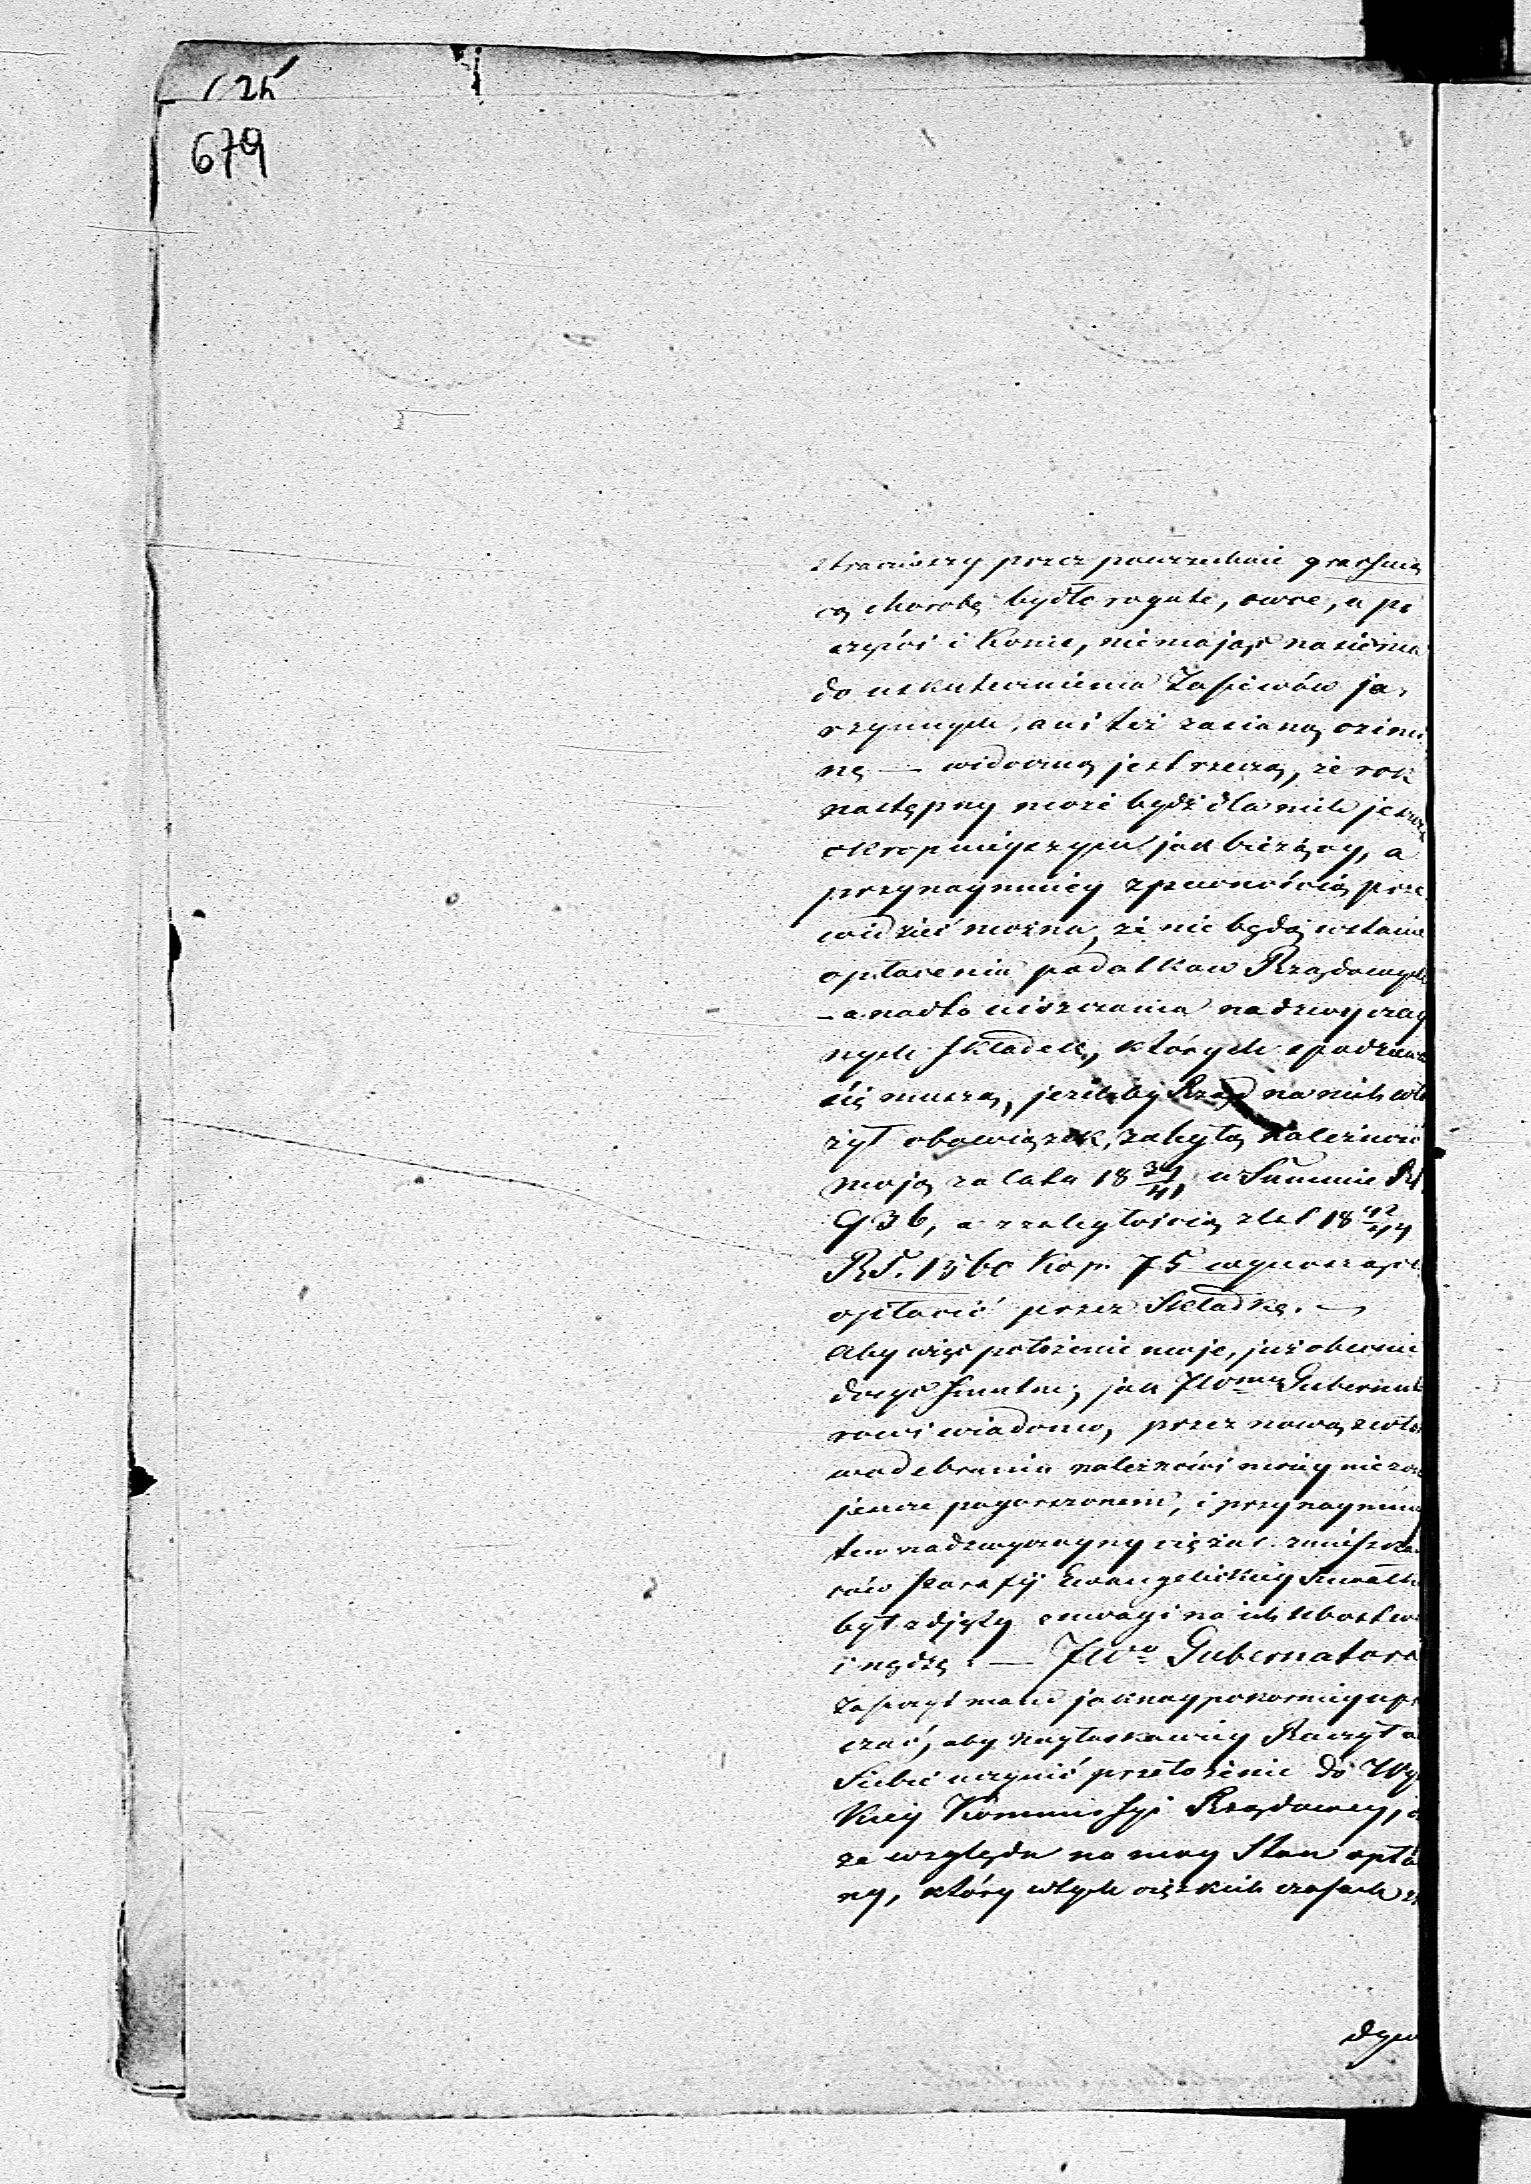 679
straciwszy przez powszechnie grassują
cą chorobę bydło rogate, owce, a po
części i Konie, nie mając nasienia
do uskutecznienia Zasiewów ja-
rzynnych, ani też zasianą ozimi
nę — widoczną jest rzeczą, że rok
następny może bydź dla nich jeszcze
okropnieyszym jak bieżący, a
przynaymniey z pewnością prze
widzieć można, że nie będą wstanie
opłacenia podatkow Rządowych
— a nadto uiszczenia nadzwyczay
nych składek, których spodziewać
się muszą, jeżeliby Rząd na nich wło
żył obowiązek, zaległą należność
moją za lata 18 39/41 w Summie RS.
936, a z zaległością z lat 18 42/44
RS. 1560 Kop. 75 wynoszące
opłacić przez Składkę. —
Aby więc położenie moje, już obecnie
dosyć smutne, jak JWmu Guberna
rowi wiadomo, przez nową zwło
w odebraniu należności moiey nie zo
jeszcze pogorszonem, i przynaymniey
ten nadzwyczayny ciężar zmieszcza
ców Parafij Ewangelickiey Suwałk
był zdjęty z uwagi na ich ubostwo
i nędzę. — JWo Gubernatora
Zaszczyt mam jaknaypokorniey upr
szać, aby nayłaskawiey Raczył od
Siebie uczynić przełożenie do Wys
kiey Kommissyi Rządowey, a
ze względu na moy Stan opła
ny, który w tych ciężkich czasach